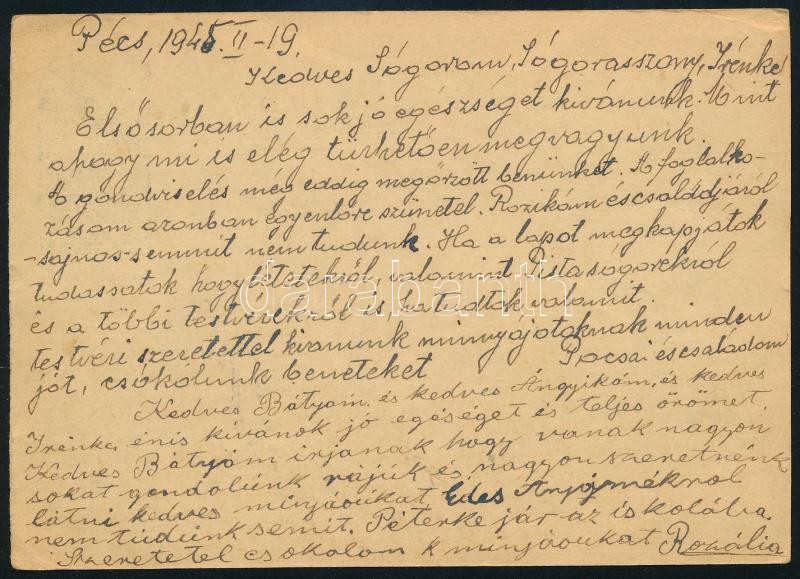 Pécs, 1945. II-19.
Kedves Sógorom, Sógorasszony, Irénke
Elsősorban is sok jó egészséget kivánunk. Mint
ahogy mi is elég türhetően megvagyunk.
A gondviselés még eddig megőrzött benünket. A foglalko-
zásom azonban egyenlőre szünetel. Rozikám és családjáról
-sajnos-semmit nem tudunk. Ha a lapot megkapjátok
tudassatok hogylétetekről, valamint Pista sógorékról
és a többi testvérekről is, ha tudtok valamit.
testvéri szeretettel kivanunk minnyájotoknak minden
jót, csókolunk beneteket Pocsai és családom
Kedves Bátyám és kedves Ángyikám, és kedves
Irénke énis kivánok jó egéséget és teljes örömet.
Kedves Bátyám irjanak hogy vanak nagyon
sokat gondolúnk rájúk és nagyon szeretnénk
látni kedves minjáoúkat Édes Anyáméknrol
nem túdúnk semit. Péterke jár az iskolába.
Szeretetel csokolom k minjáoukat Rozália
darabanth